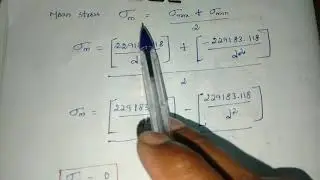 Mean stress σm = σmax + σmin / 2
= [229183.118 / d²] + [-229183.118 / d²] / 2
σm = [229183.118 / d²] - [229183.118 / d²]
= 0